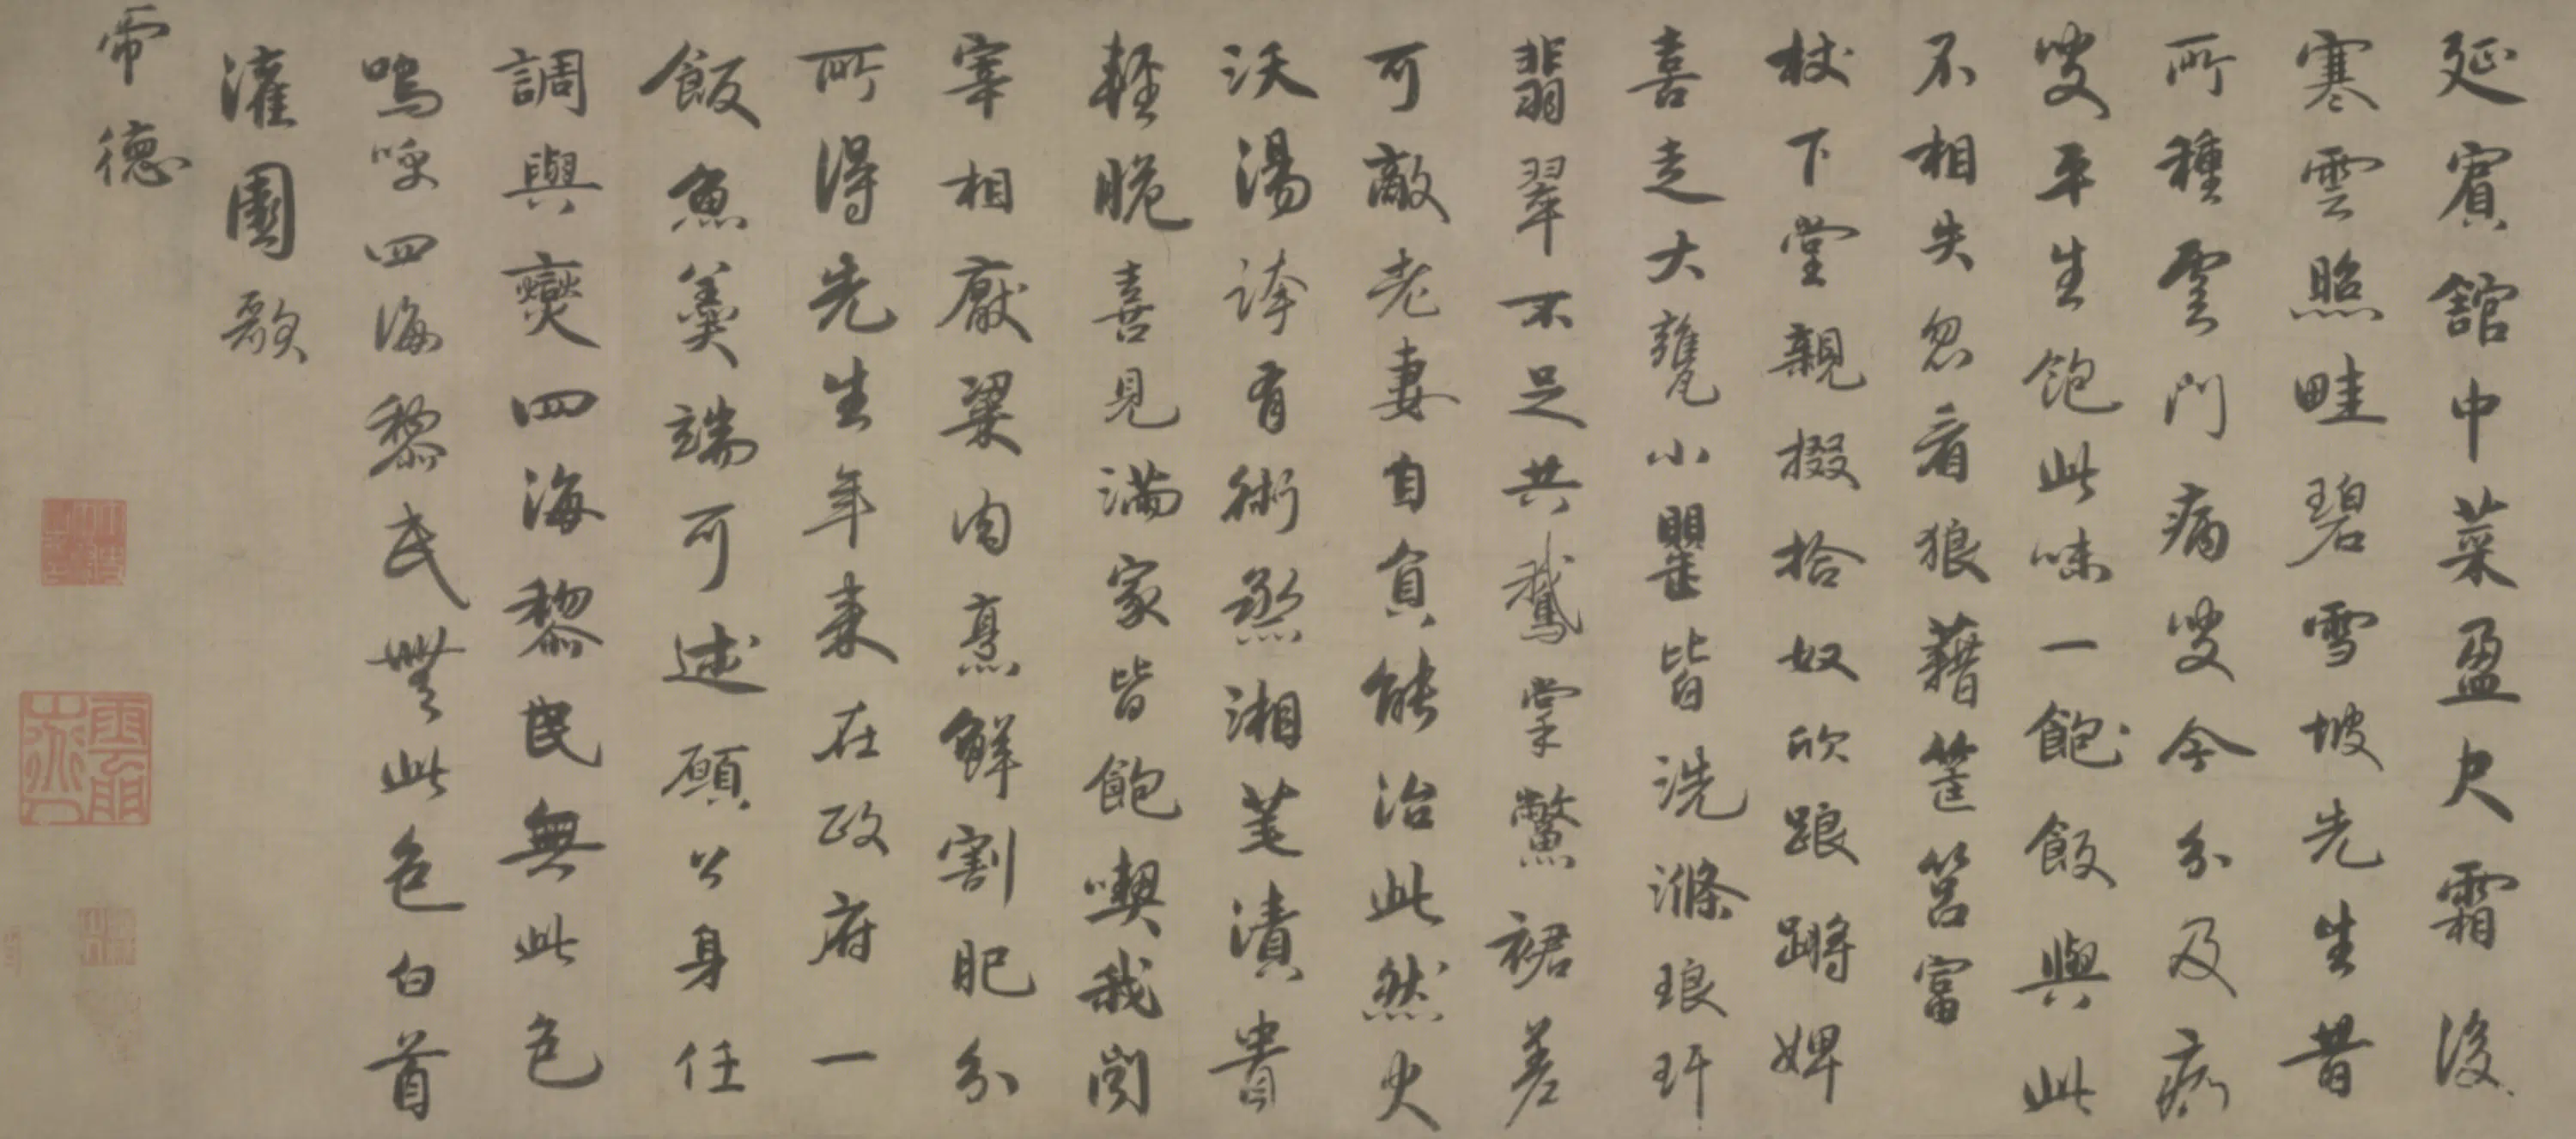 延賓舘中菜盈尺霜後
寒雲照畦碧雪坡先生昔
所種雲門病叟今分及病
叟平生飽此味一飽飯與此
不相失忽看狼藉筐筥富
杖下堂親掇拾奴欣踉蹡婢
喜走大甕小罌皆洗滌琅玕
翡翠不足共鵞掌鱉裙差
可敵老妻自負能治此然火
沃湯誇有術烝湘芼漬貴
輕脆喜見滿家皆飽喫我聞
宰相厭粱肉烹鮮割肥分
所得先生年來在政府一
飯魚羮端可述願公身任
調與爕四海黎民無此色
嗚呼四海黎民無此色白首
灌園歌
帝德